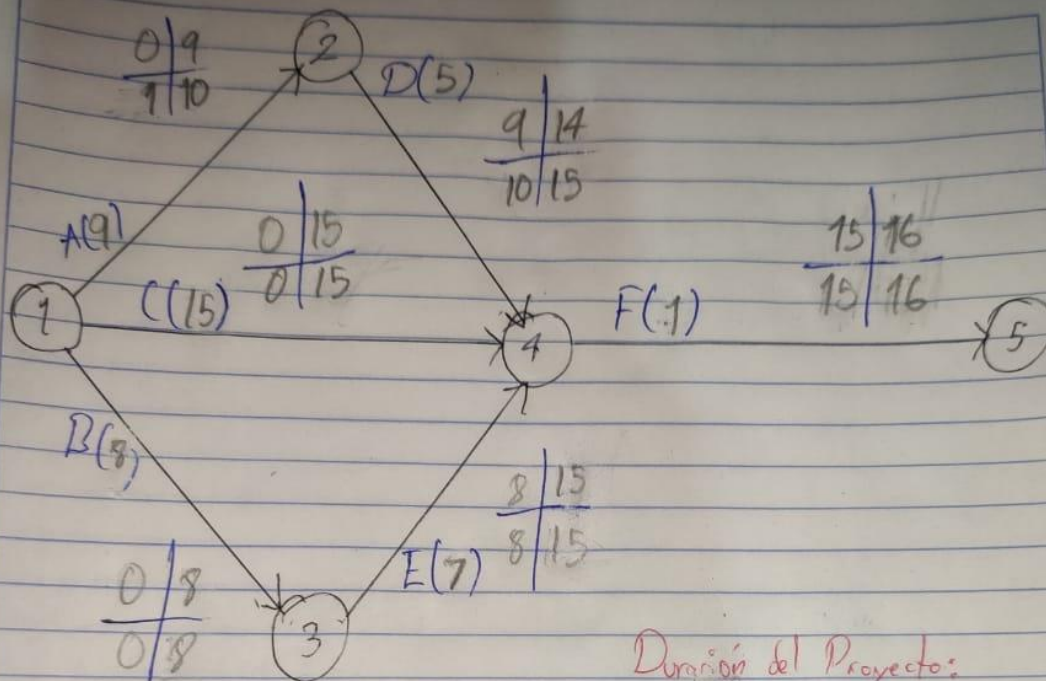 0 9
1 10
2
D(5)
9 14
10 15
A(9)
0 15
0 15
15 16
15 16
1
C(15)
F(1)
4
5
B(8)
8 15
8 15
0 8
0 8
E(7)
3
Duración del Proyecto: